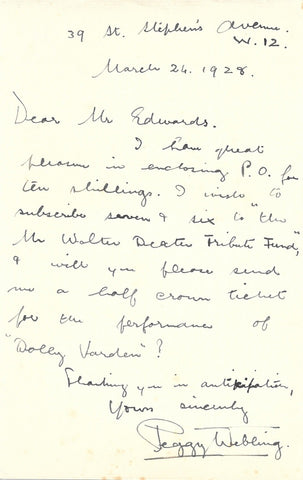 39 St. Stephen's Avenue.
W. 12.
March 24. 1928.
Dear Mr Edwards.
I have great
pleasure in enclosing P.O. for
ten shillings. I wish to
subscribe seven & six to "the
Mr Walter Dexter Tribute Fund",
& will you please send
me a half crown ticket
for the performance of
"Dolly Varden"?
Thanking you in anticipation,
Yours sincerely
Peggy Webling.